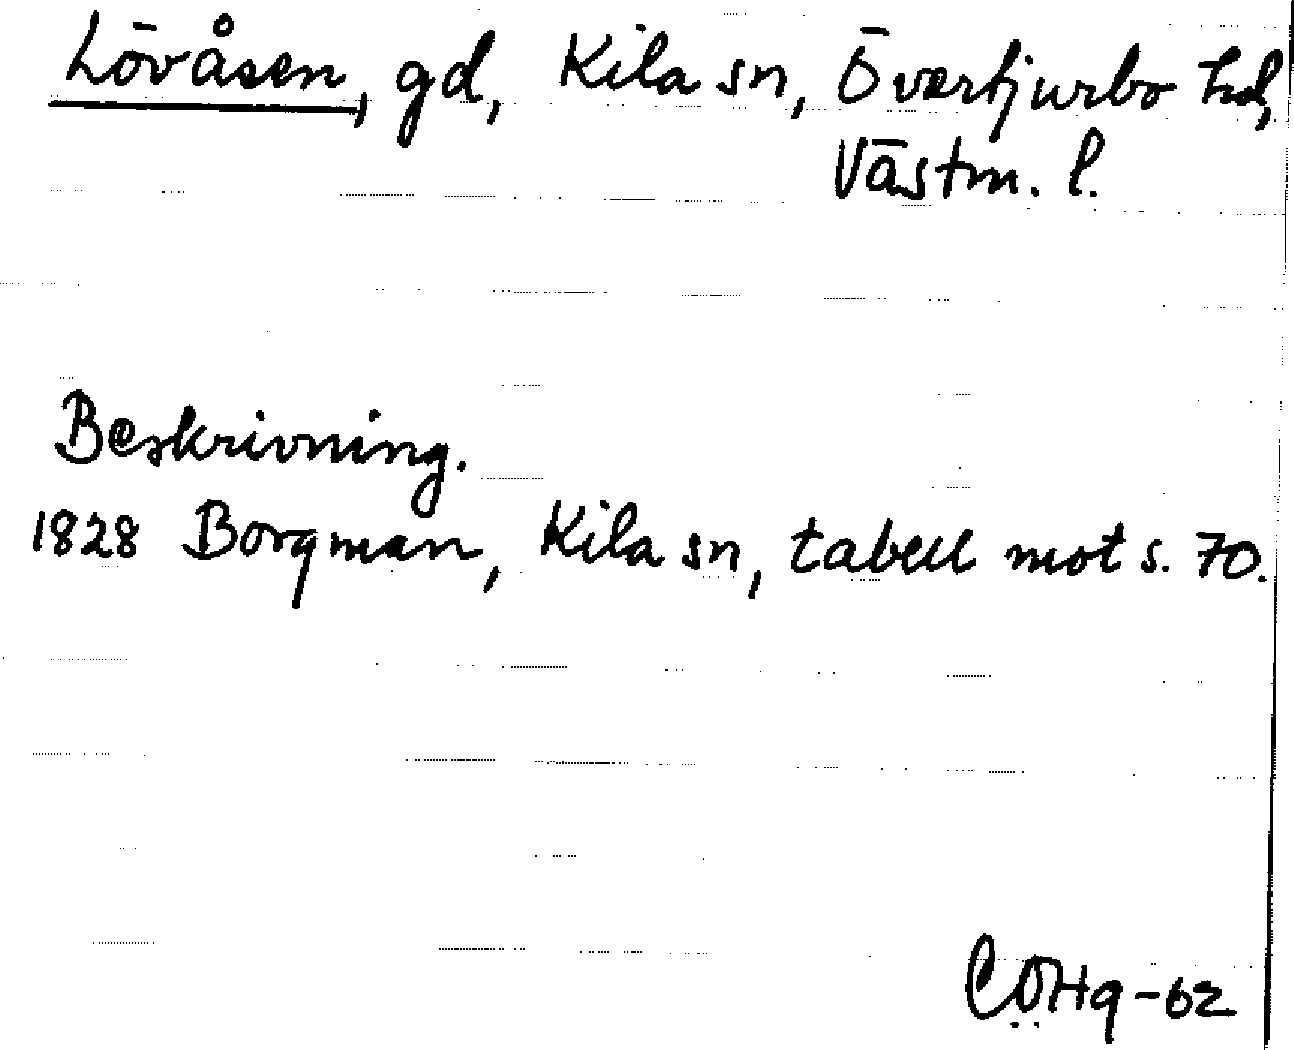 Lövåsen, gd, Kila sn, Övertjurbo hd,
Västm. l.
Beskrivning.
1828 Borgman, Kila sn, tabell mot s. 70.
CÖHg-62